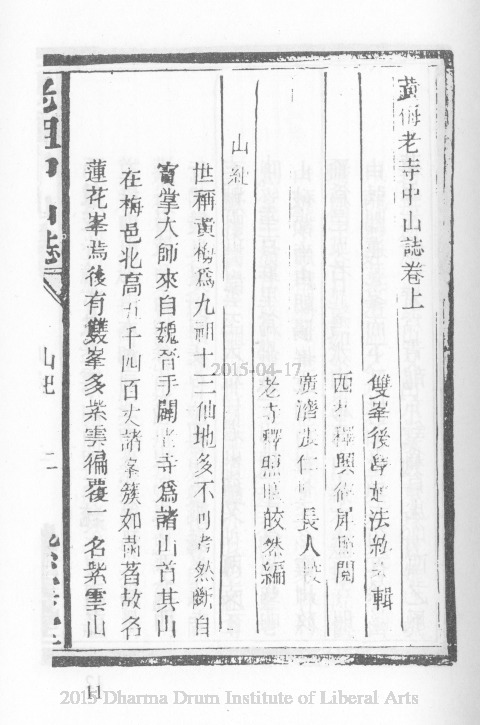 黃梅老寺中山誌卷上
雙峯後學 法 輯
西 釋照 犀 閱
廣濟 仁 長人
老寺釋照 皎然編
山紀
世稱黃梅爲九祖十三仙地多不可考然斷自
寶掌大師來自魏晉手闢老寺爲諸山首其山
在梅邑北高五千四百丈諸峯簇如菡萏故名
蓮花峯焉後有雙峯多紫雲徧覆一名紫雲山
老祖中山誌
山紀
二
2015-04-17
11
2015 Dharma Drum Institute of Liberal Arts